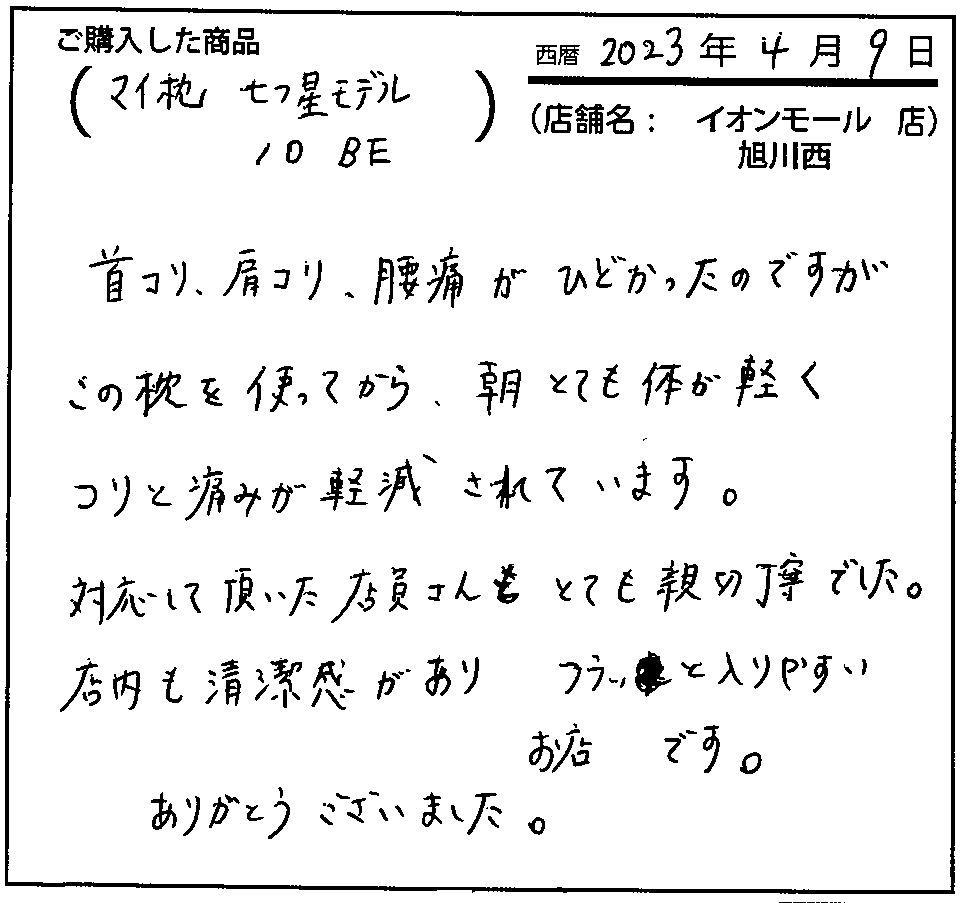 ご購入した商品
西暦 2023年 4月 9日
(マイ枕 七つ星モデル
10 BE)
(店舗名： イオンモール 店)
旭川西
首コリ、肩コリ、腰痛が ひどかったのですが
この枕を使ってから、朝とても体が軽く
コリと痛みが軽減されています。
対応して頂いた店員さんも とても親切丁寧でした。
店内も清潔感があり フラッと入りやすい
お店 です。
ありがとうございました。